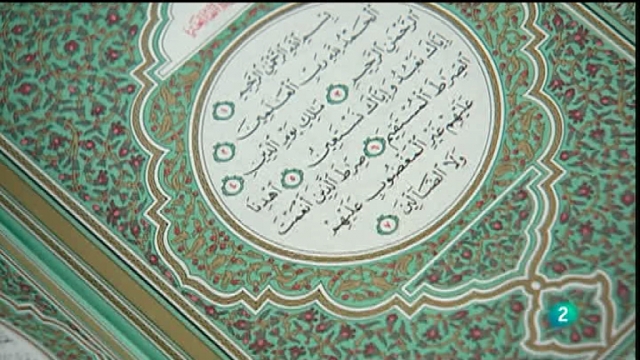 بِسْمِ اللَّهِ الرَّحْمَٰنِ الرَّحِيمِ ١
الْحَمْدُ لِلَّهِ رَبِّ الْعَالَمِينَ ٢
الرَّحْمَٰنِ الرَّحِيمِ ٣ مَالِكِ يَوْمِ الدِّينِ ٤
إِيَّاكَ نَعْبُدُ وَإِيَّاكَ نَسْتَعِينُ ٥ اهْدِنَا
الصِّرَاطَ الْمُسْتَقِيمَ ٦ صِرَاطَ الَّذِينَ أَنْعَمْتَ
عَلَيْهِمْ غَيْرِ الْمَغْضُوبِ عَلَيْهِمْ
وَلَا الضَّالِّينَ ٧
2